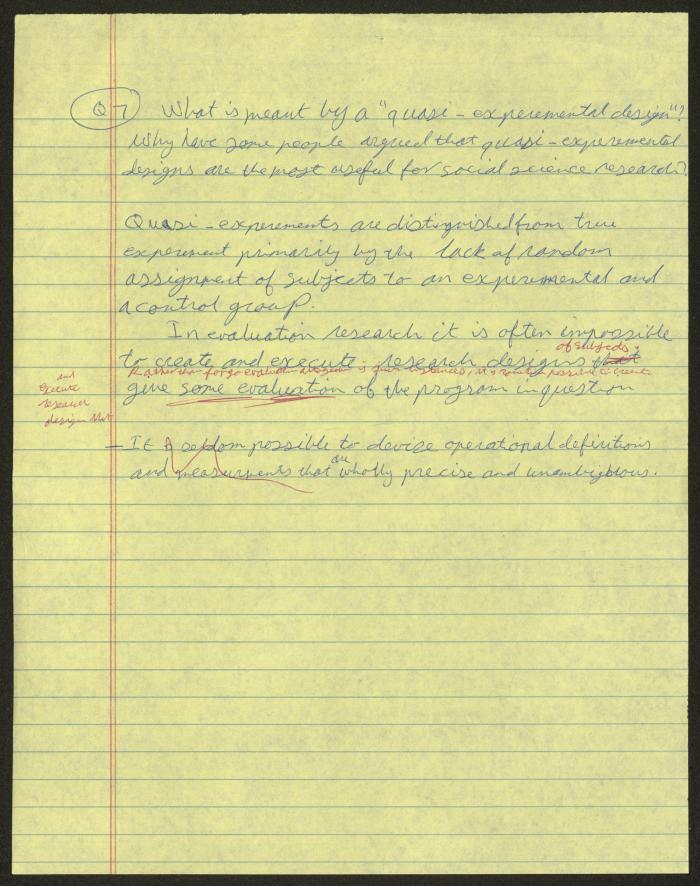 Q 7 What is meant by a "quasi-experemental design"?
Why have some people argued that quasi-experemental
designs are the most useful for social science research?
Quasi-experements are distinguished from true
experement primarily by the lack of random
assignment of subjects to an experemental and
a control group.
In evaluation research it is often impossible
of subjects.
to create and execute research designs that
Rather than forgo evaluation altogether in such instances, it is possible to create
and
execute
research
design that
give some evaluation of the program in question
- It is seldom possible to devise operational definitions
are
and measurments that wholly precise and unambigious.